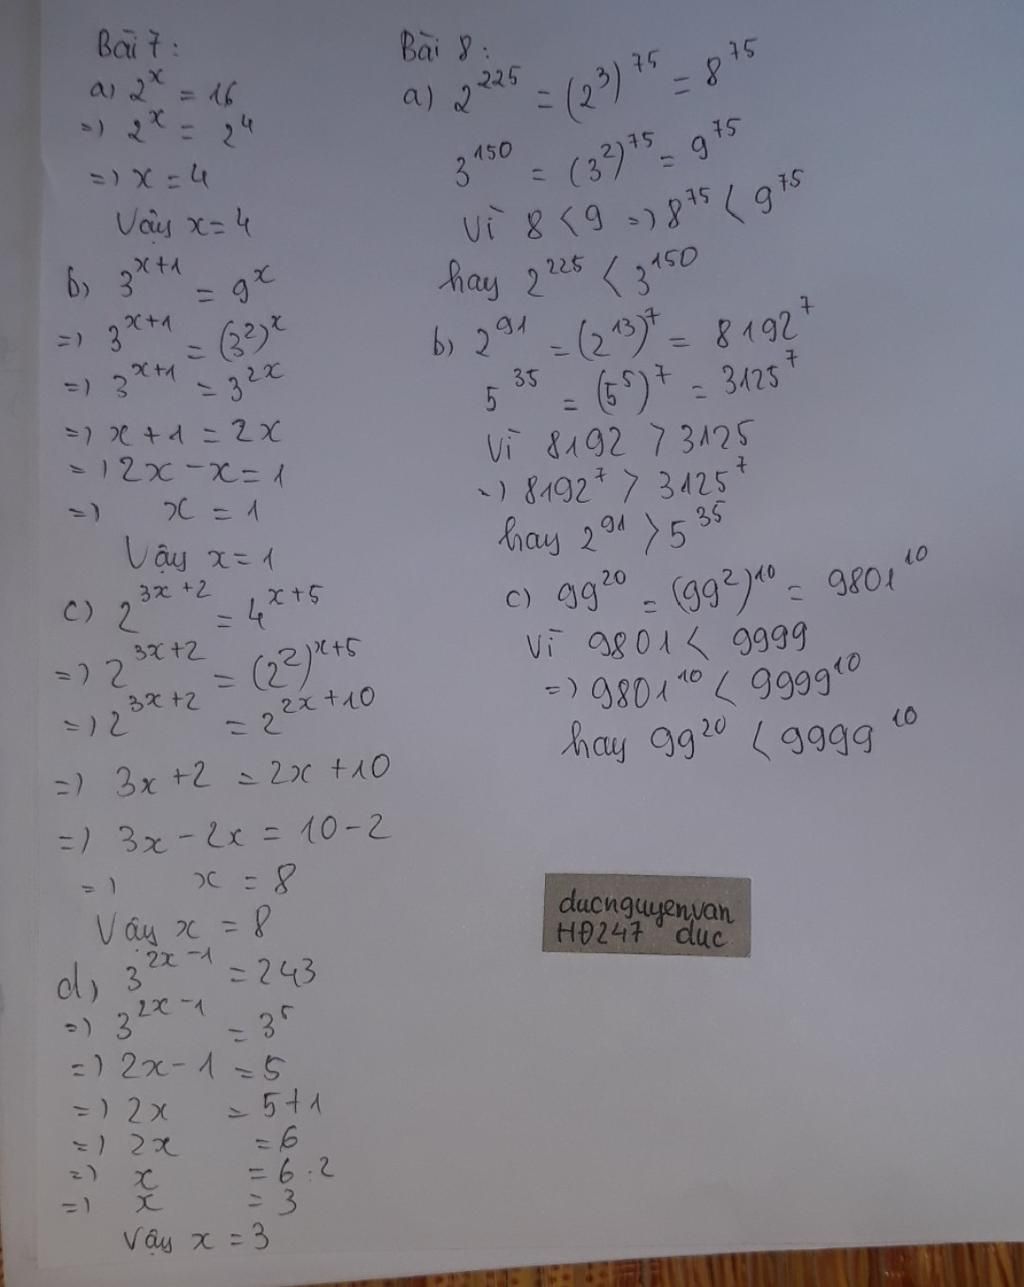 Bài 7:
a) 2^x = 16
=) 2^x = 2^4
=) x = 4
Vậy x = 4
b) 3^{x+1} = 9^x
=) 3^{x+1} = (3^2)^x
=) 3^{x+1} = 3^{2x}
=) x + 1 = 2x
=) 2x - x = 1
=) x = 1
Vậy x = 1
c) 2^{3x+2} = 4^{x+5}
=) 2^{3x+2} = (2^2)^{x+5}
=) 2^{3x+2} = 2^{2x+10}
=) 3x + 2 = 2x + 10
=) 3x - 2x = 10 - 2
=) x = 8
Vậy x = 8
d) 3^{2x-1} = 243
=) 3^{2x-1} = 3^5
=) 2x - 1 = 5
=) 2x = 5 + 1
=) 2x = 6
=) x = 6 : 2
=) x = 3
Vậy x = 3
Bài 8:
a) 2^{225} = (2^3)^{75} = 8^{75}
3^{150} = (3^2)^{75} = 9^{75}
Vì 8 < 9 =) 8^{75} < 9^{75}
hay 2^{225} < 3^{150}
b) 2^{91} = (2^{13})^7 = 8192^7
5^{35} = (5^5)^7 = 3125^7
Vì 8192 > 3125
=) 8192^7 > 3125^7
hay 2^{91} > 5^{35}
c) 99^{20} = (99^2)^{10} = 9801^{10}
Vì 9801 < 9999
=) 9801^{10} < 9999^{10}
hay 99^{20} < 9999^{10}
ducnguyenvan
HĐ247 duc